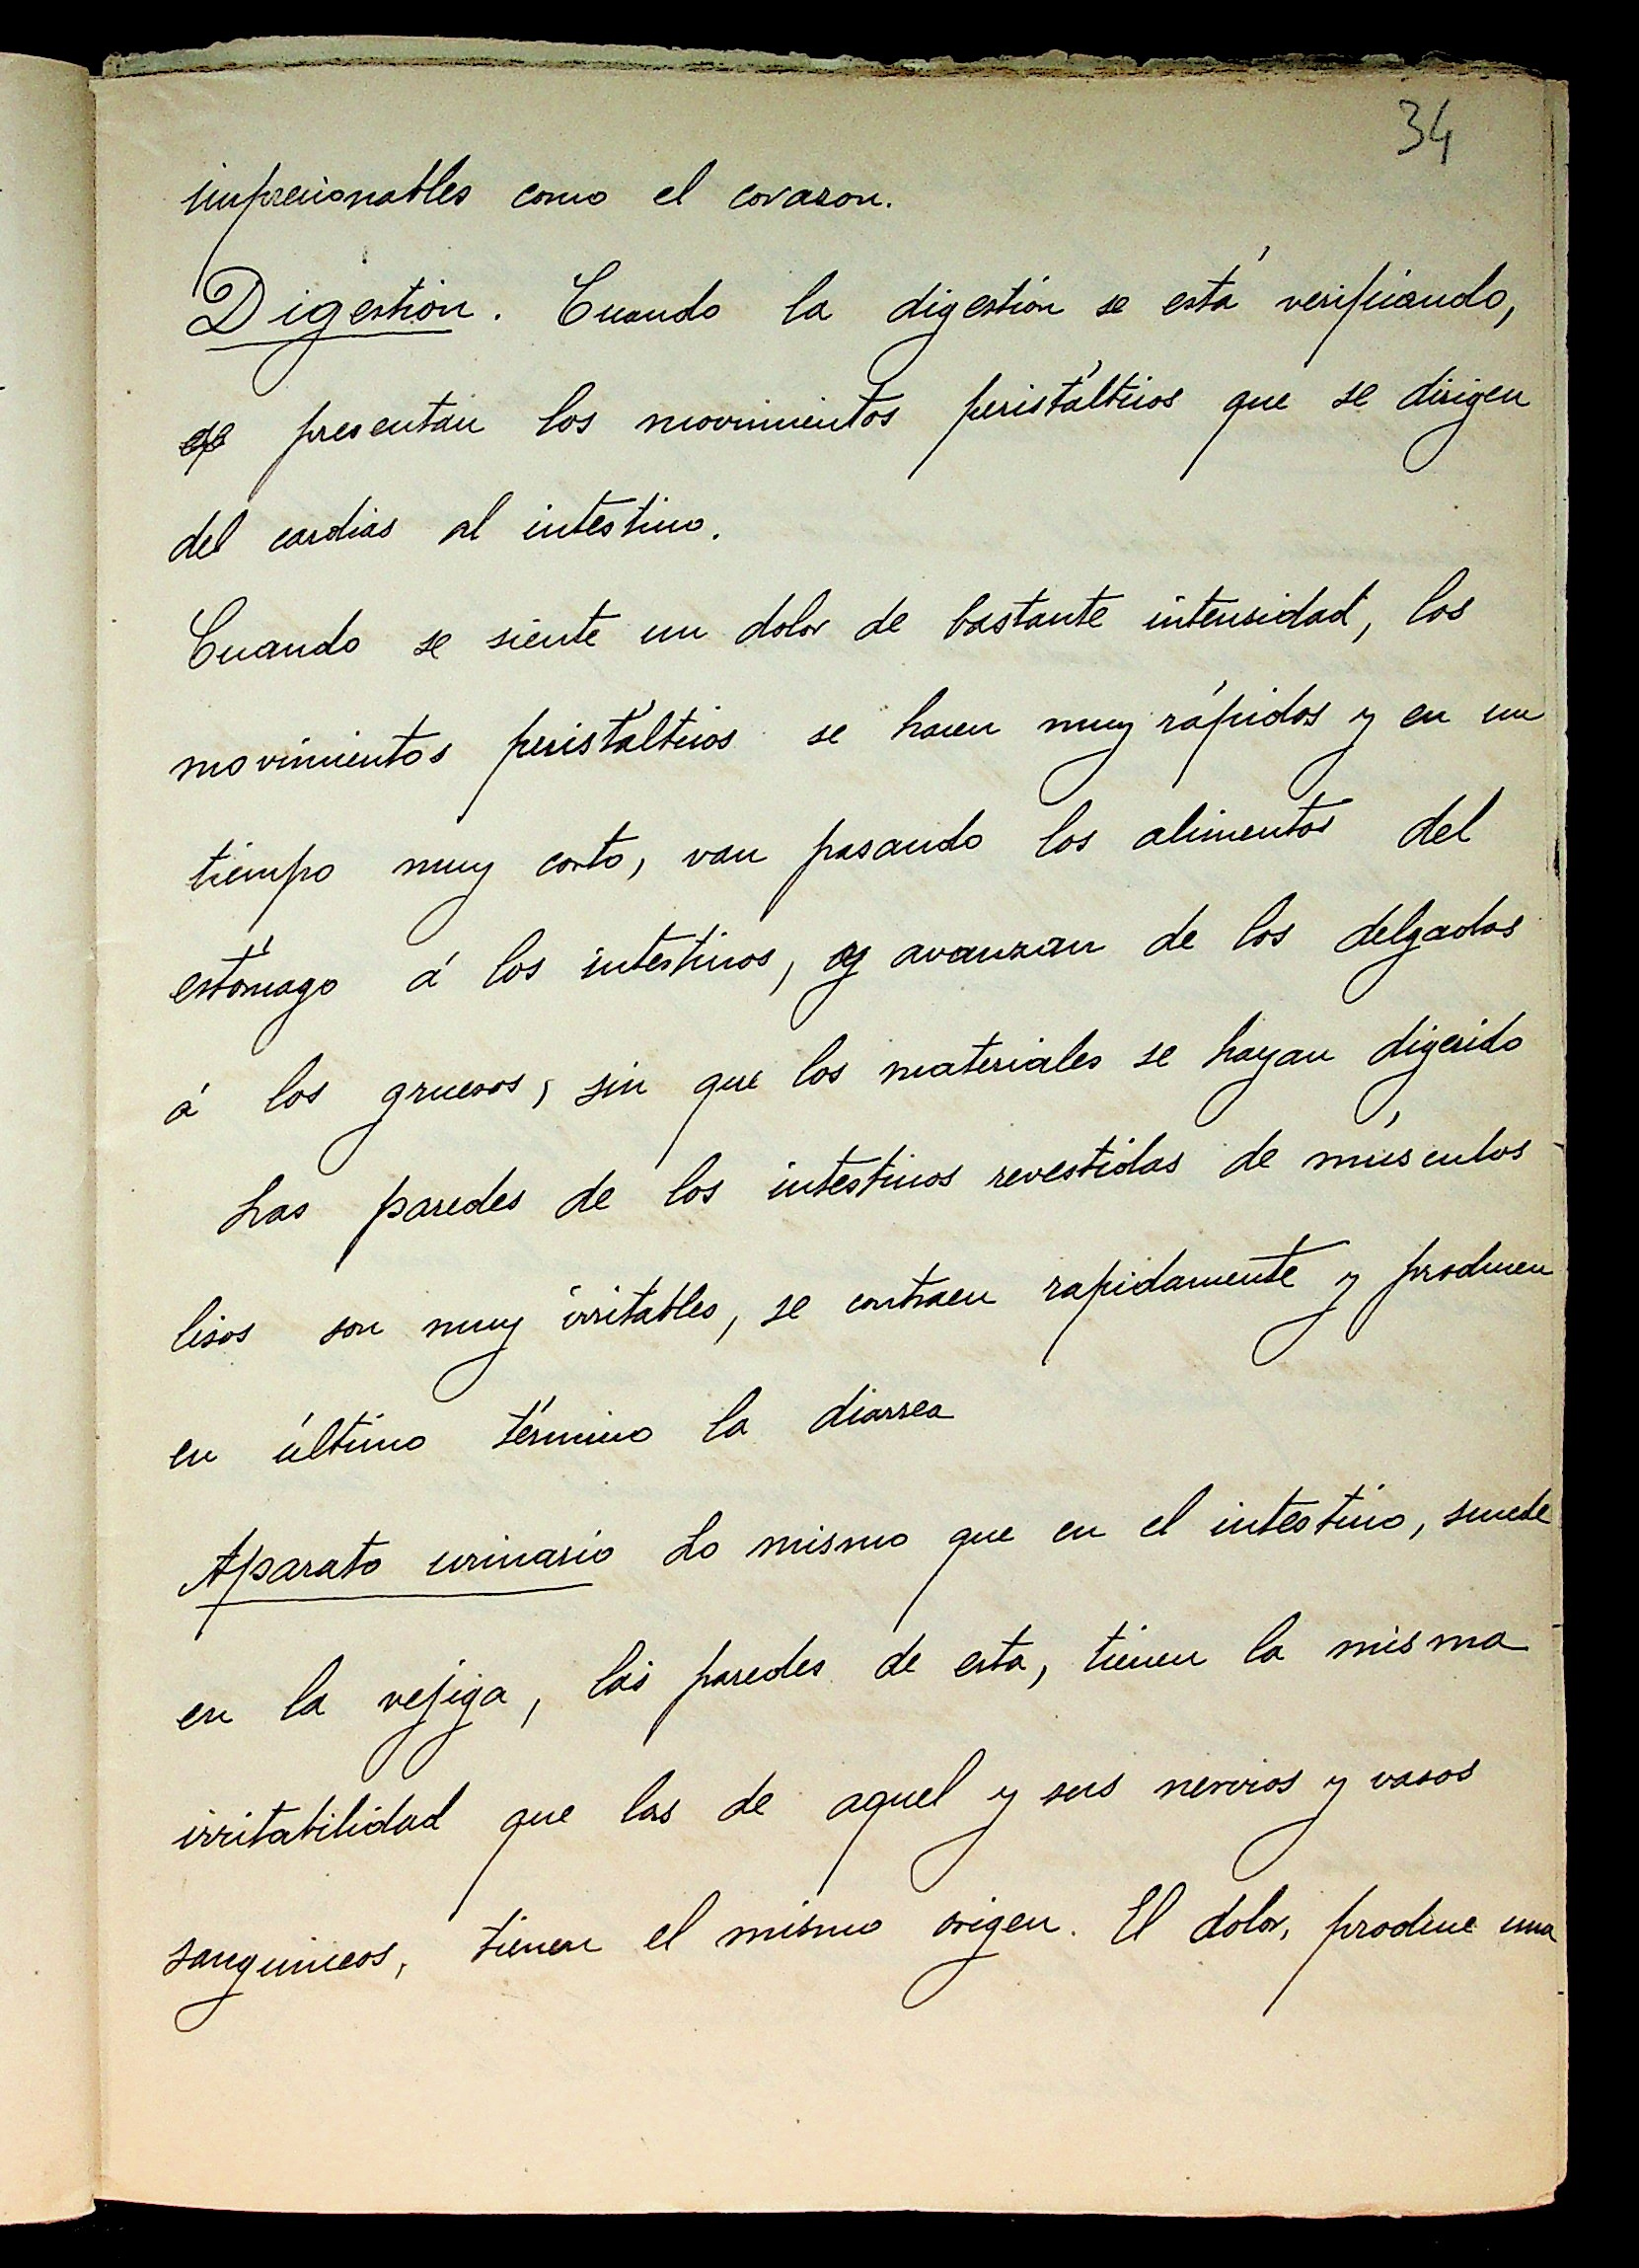 34
impresionables como el corazon.
Digestión. Cuando la digestión se está verificando,
se presentan los movimientos peristálticos que se dirigen
del cardias al intestino.
Cuando se siente un dolor de bastante intensidad, los
movimientos peristálticos se hacen muy rápidos y en un
tiempo muy corto, van pasando los alimentos del
estómago á los intestinos, y avanzan de los delgados
á los gruesos, sin que los materiales se hayan digerido
Las paredes de los intestinos revestidas de músculos
lisos son muy irritables, se contraen rapidamente y producen
en último término la diarrea
Aparato urinario Lo mismo que en el intestino, sucede
en la vejiga, las paredes de esta, tienen la misma
irritabilidad que las de aquel y sus nervios y vasos
sanguineos, tienen el mismo origen. El dolor, produce una